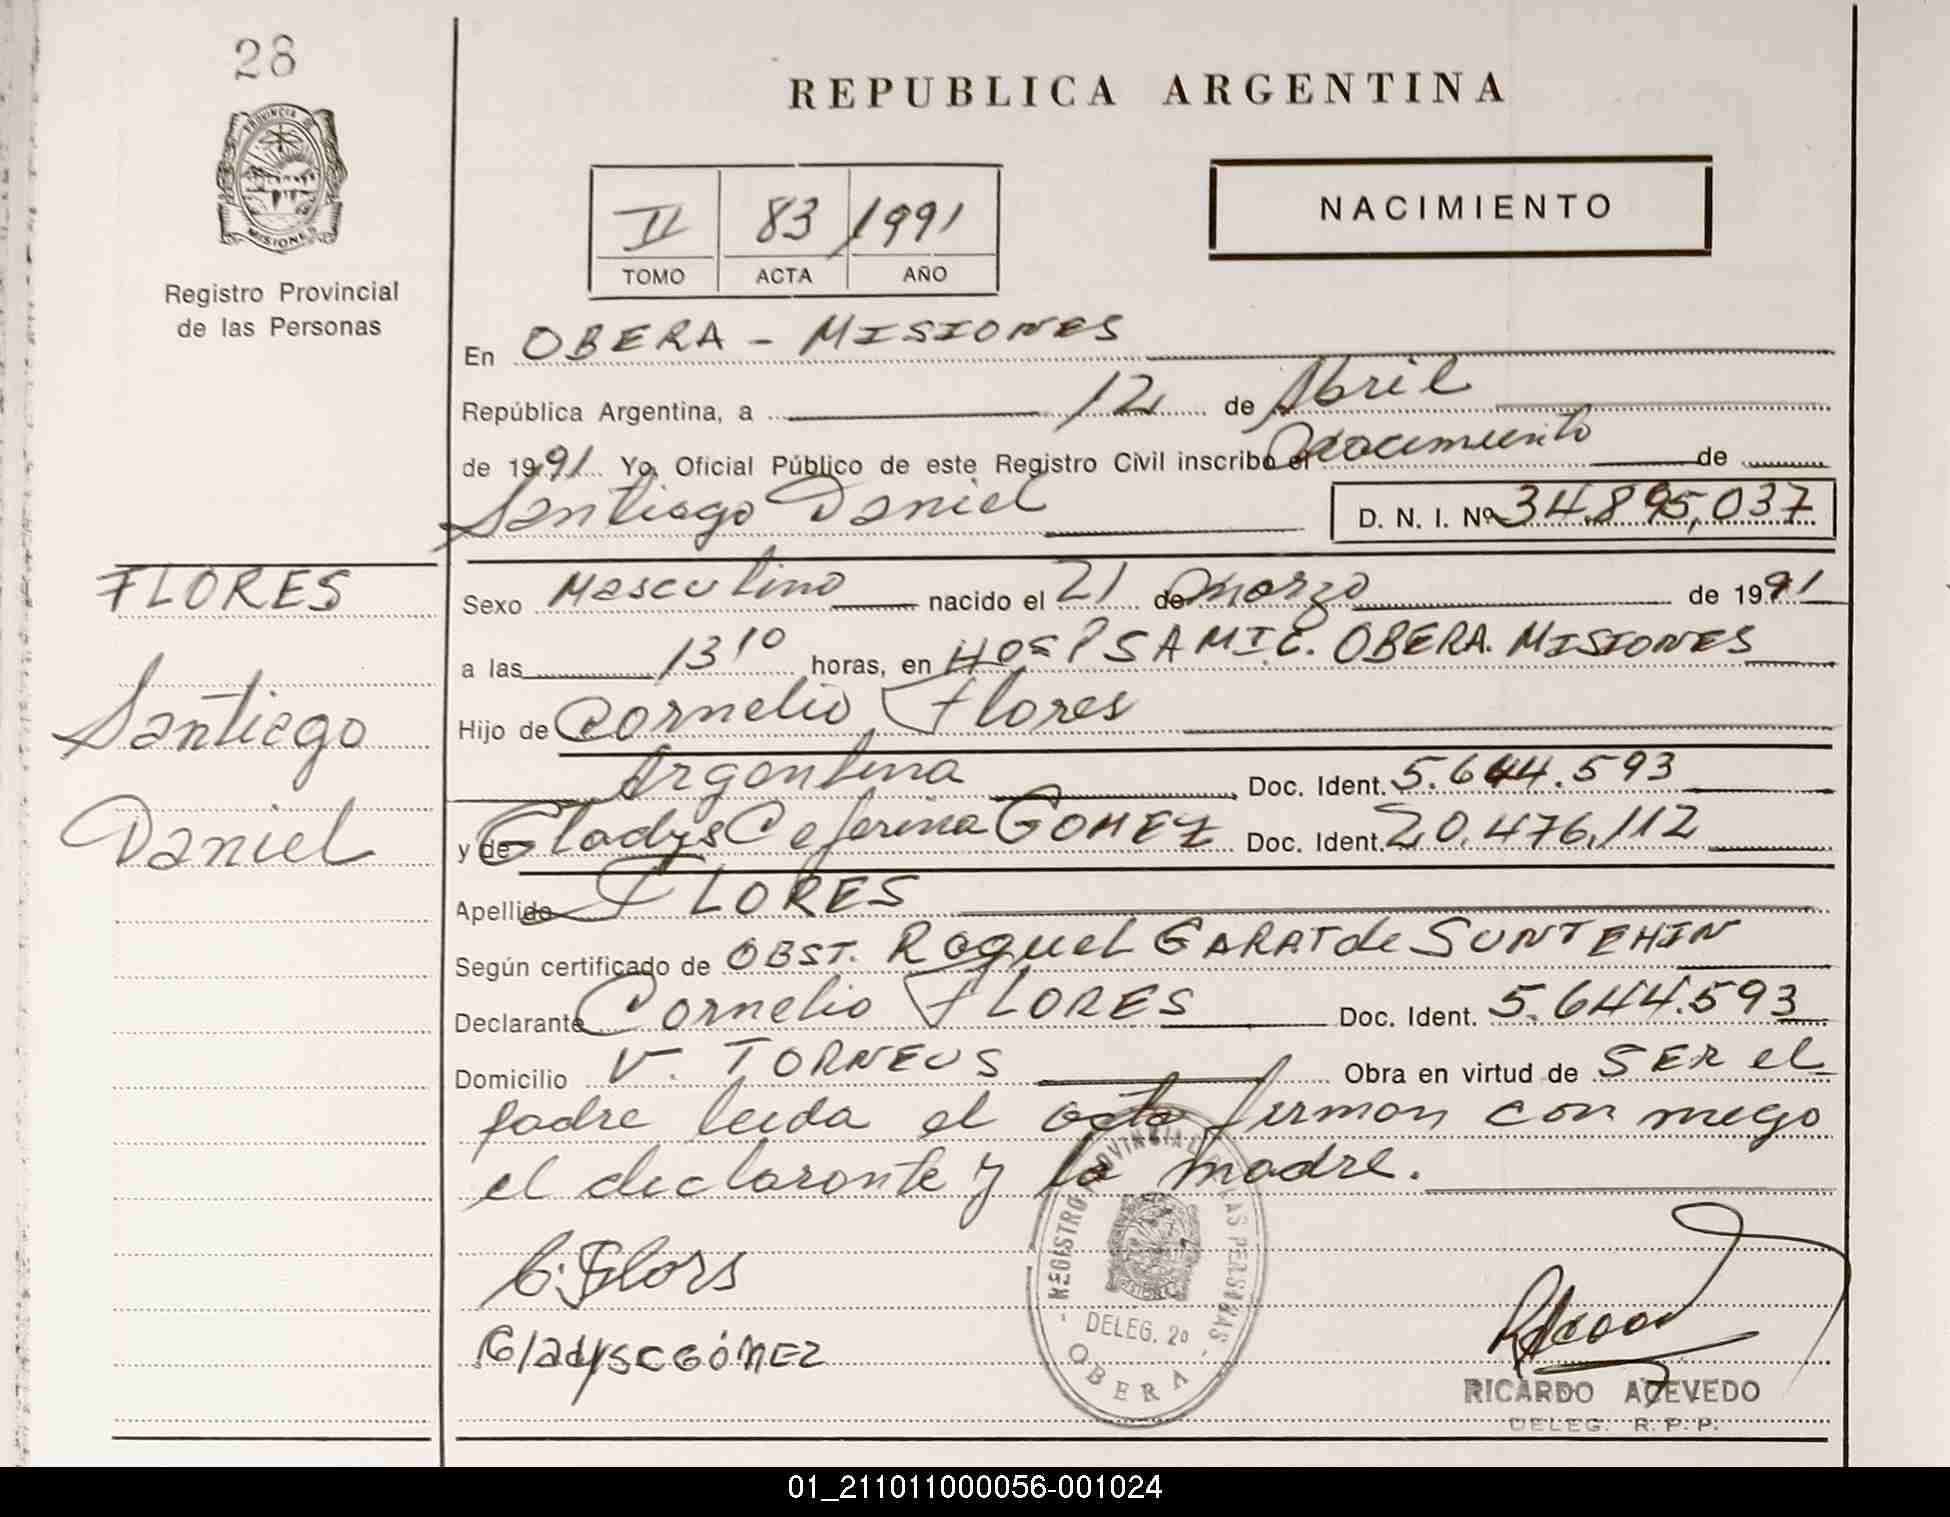 28
REPUBLICA ARGENTINA
PROVINCIA DE
MISIONES
Registro Provincial
de las Personas
II 83 1991
TOMO ACTA AÑO
NACIMIENTO
En OBERA - MISIONES
República Argentina, a 12 de Abril
de 1991 Yo, Oficial Público de este Registro Civil inscribo el Nacimiento de
Santiago Daniel D. N. I. Nº 34.895,037
FLORES
Santiago
Daniel
Sexo Masculino nacido el 21 de Marzo de 1991
a las 13 10 horas, en HOSP SAMIC. OBERA. MISIONES
Hijo de Cornelio Flores
Argentina Doc. Ident. 5.644.593
y de Gladys Ceferina GOMEZ Doc. Ident. 20.476,112
Apellido FLORES
Según certificado de OBST. Raquel GARAT de SUNTEHIN
Declarante Cornelio FLORES Doc. Ident. 5.644.593
Domicilio V. TORNEUS Obra en virtud de SER el
padre leida el acta firman con mego
el declarante y la madre.
C. Flors
Gladys C GÓMEZ
REGISTRO PROVINCIAL DE LAS PERSONAS
DELEG. 2º
OBERA
RICARDO ACEVEDO
DELEG. R. P. P.
01_211011000056-001024